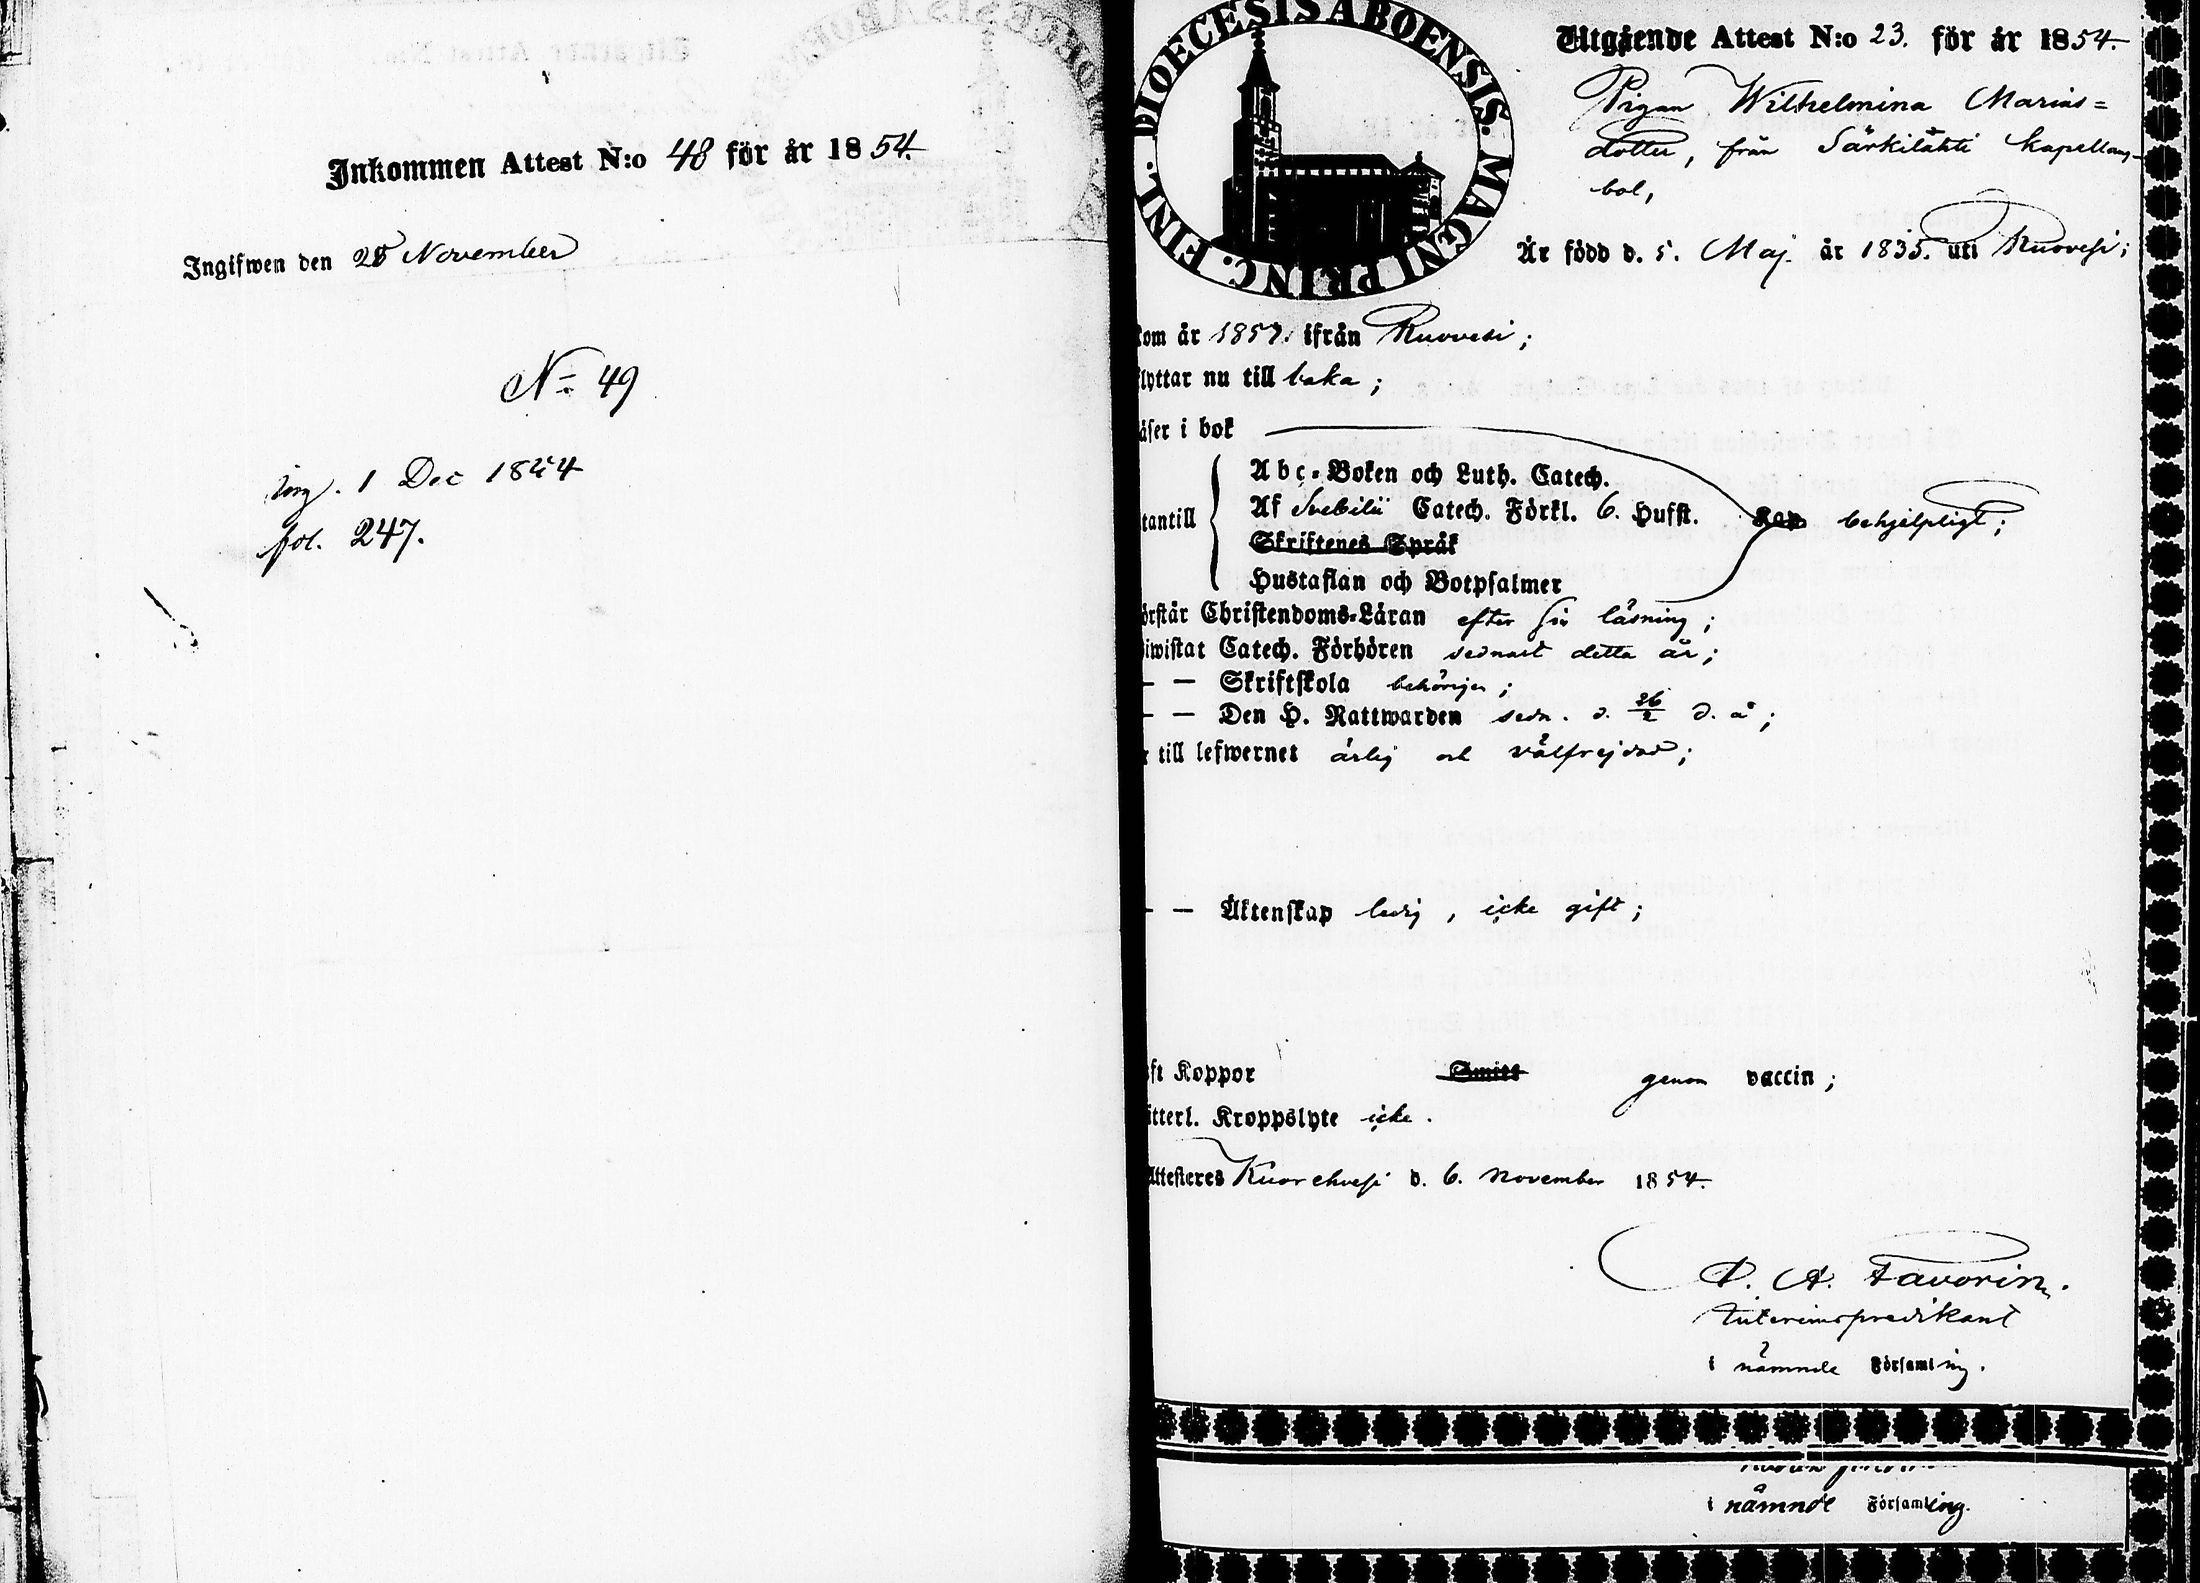 Inkommen Attest N:o 48 för år 1854.
Ingifwen den 28 November
N:o 49
ing. 1 Dec 1854
fol. 247.
DIOECESIS ABOENSIS. MAGNI PRINC. FINL.
Utgående Attest N:o 23. för år 1854.
Pigan Wilhelmina Marias=
dotter, från Särkilahti Kapellans-
bol,
Är född d. 5. Maj. år 1835. uti Ruovesi;
kom år 1851. ifrån Ruovesi;
flyttar nu till baka;
äser i bok
Abc-Boken och Luth. Catech.
tantill Af Svebilii Catech. Förkl. 6. Hufst. Kap behjelpligt;
Skriftenes Språk
Hustaflan och Botpsalmer
örstår Christendoms-Läran efter sin läsning;
iwistat Catech. Förhören sednast detta år;
— — Skriftskola behörigen;
— — Den H. Nattwarden sedn. d. 26/2 d. å;
till lefwernet ärlig och välfrejdad;
— — Äktenskap ledig, icke gift;
ft Koppor Smitt genom vaccin;
itterl. Kroppslyte icke.
Attesteres Kuorehvesi d. 6. November 1854.
A. Favorin.
Interimspredikant
i nämnde Församling.
i nämnde Församling.